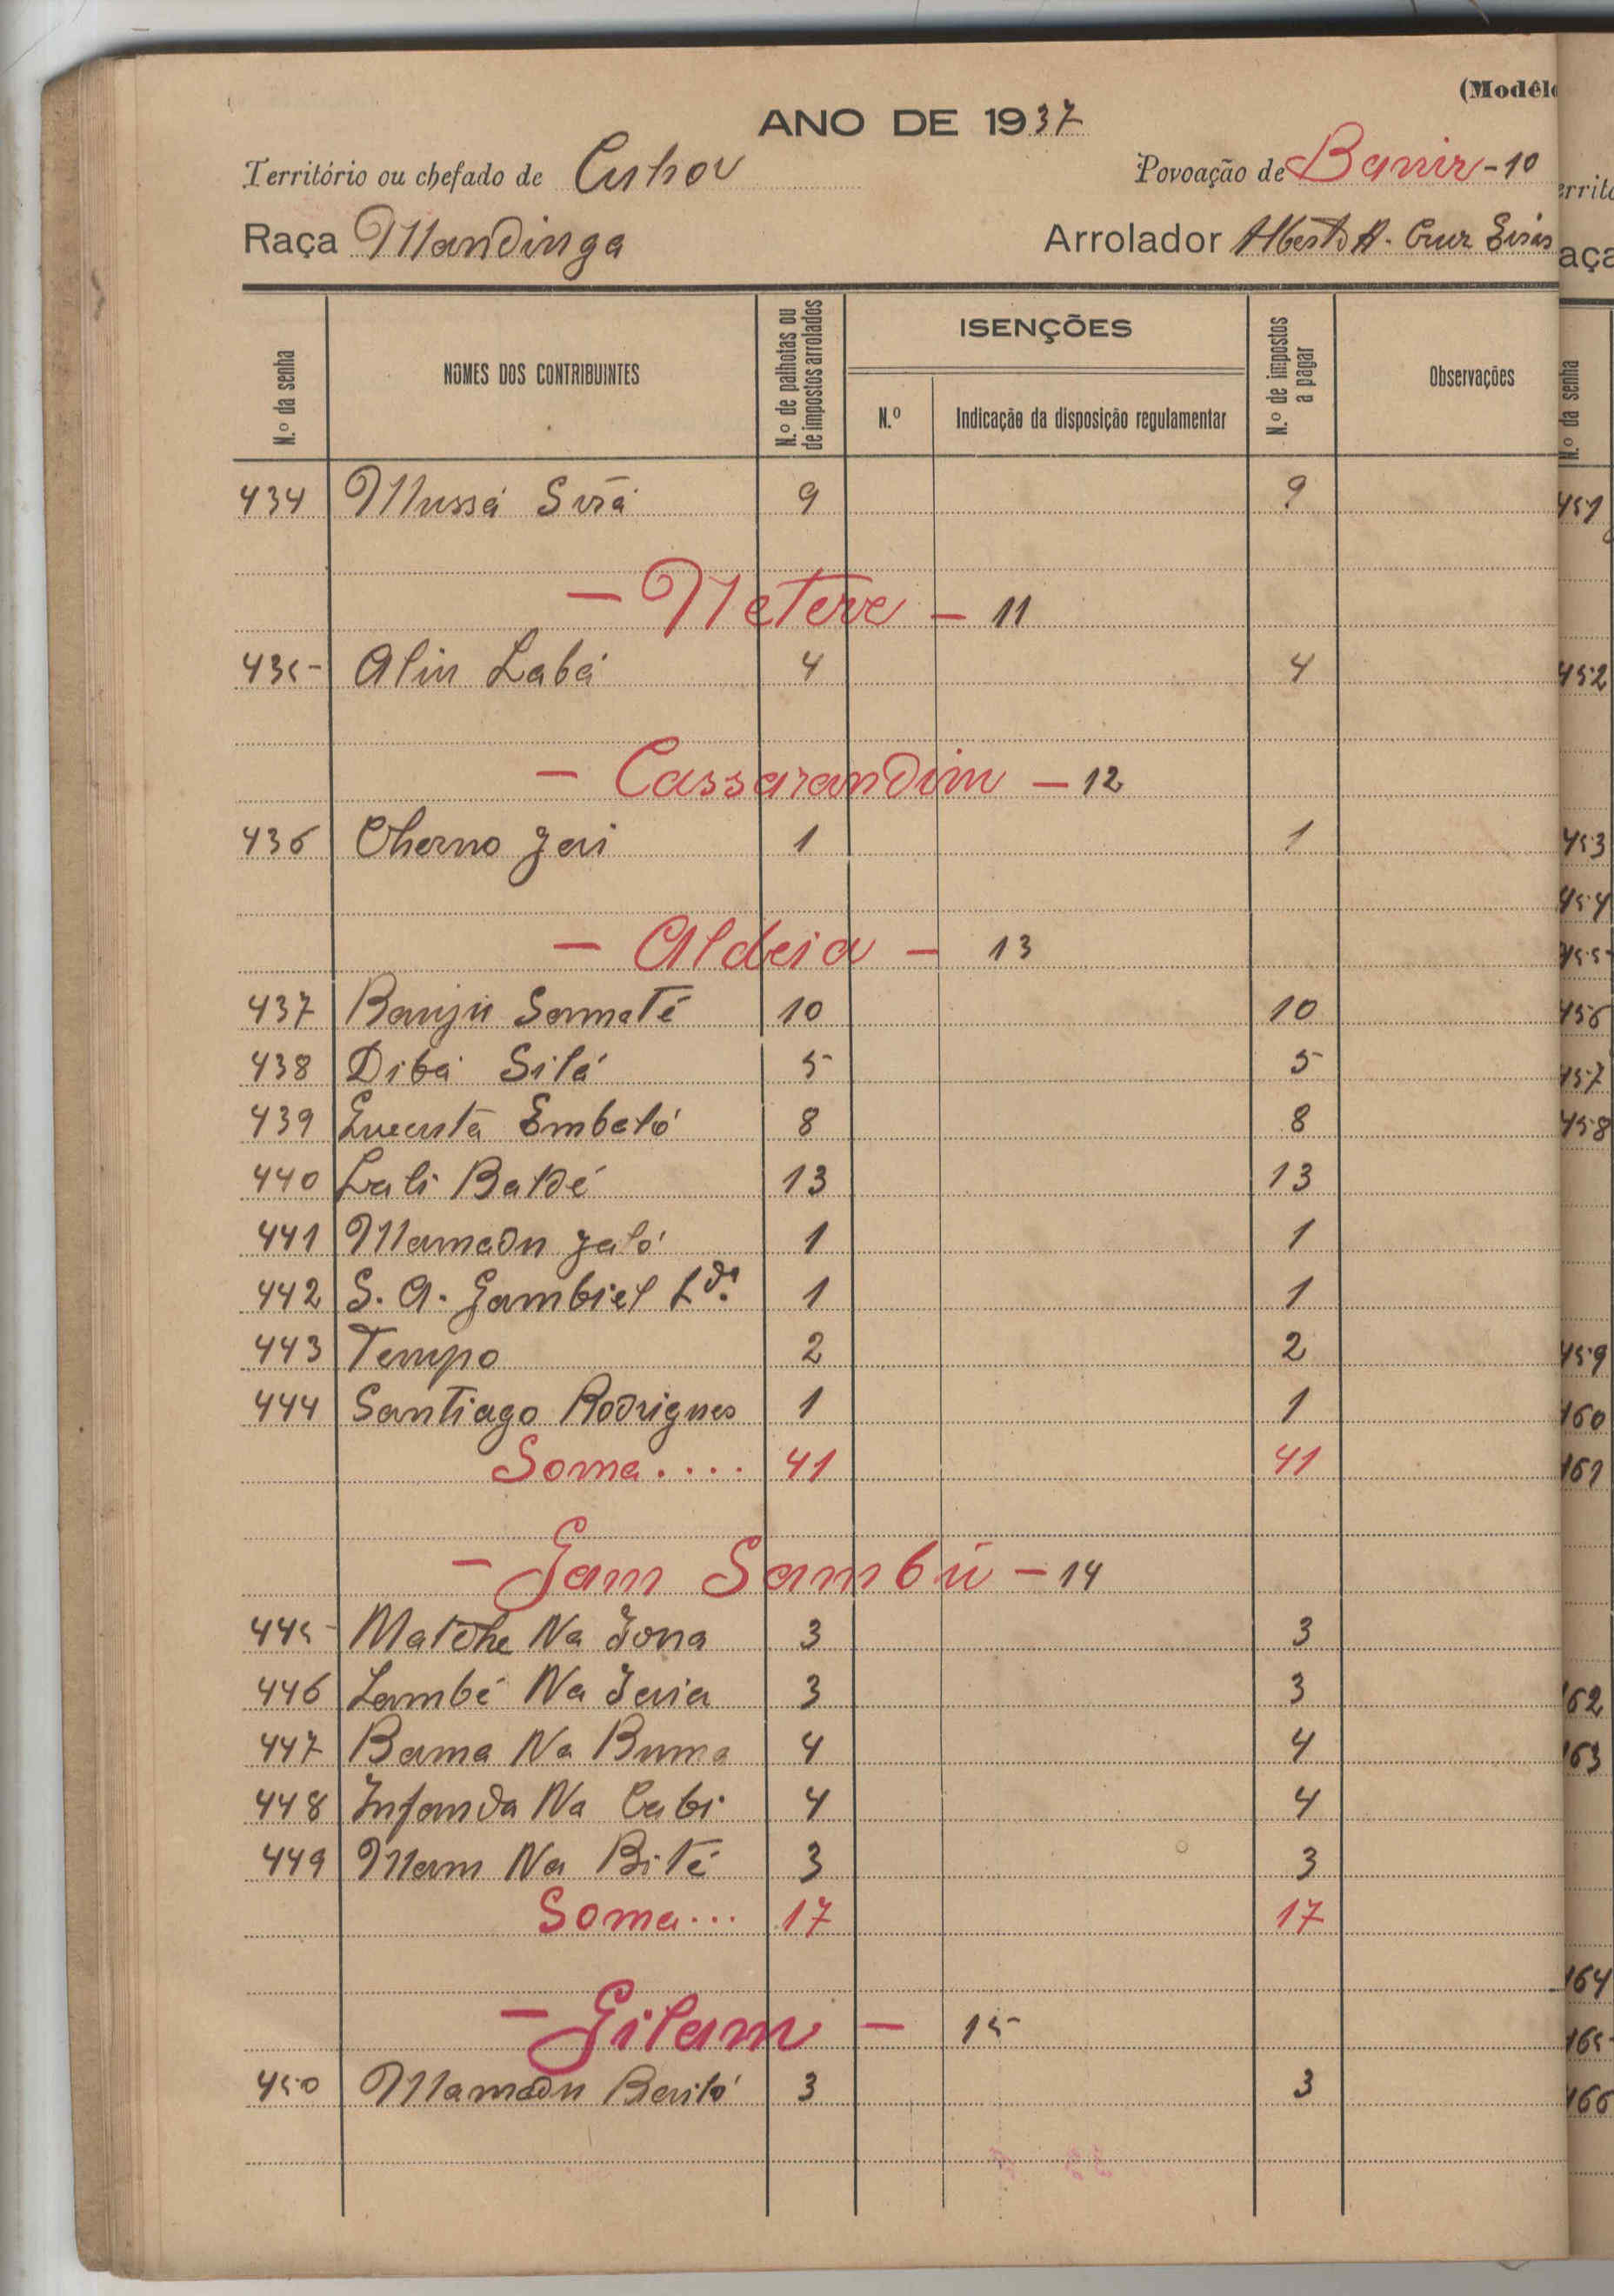 (Modêlo
ANO DE 1937
Território ou chefado de Cuhor Povoação de Banir - 10
Raça Mandinga Arrolador Alberto A. Cruz
N.º da senha NOMES DOS CONTRIBUINTES N.º de palhotas ou de impostos arrolados ISENÇÕES N.º de impostos a pagar Observações
N.º Indicação da disposição regulamentar
434 Mussá 9 9
- Netere - 11
435 Alin Labá 4 4
- Cassarandim - 12
436 Cherno Jau 1 1
- Aldeia - 13
437 Banjú Samaté 10 10
438 Dibá Silá 5 5
439 Embaló 8 8
440 Lali Baldé 13 13
441 Mamadu Jaló 1 1
442 S. A. Gambiel Lda. 1 1
443 Tempo 2 2
444 Santiago Rodrigues 1 1
Soma.... 41 41
- Gam Sambú - 14
445 Matche Na 3 3
446 Lambé Na 3 3
447 Bama Na Buma 4 4
448 Infanda Na Cabi 4 4
449 Mam Na Bité 3 3
Soma... 17 17
- Gilam - 15
450 Mamadu 3 3
erritó
aça
N.º da senha
451
452
453
454
455
456
457
458
459
460
461
462
463
464
465
466